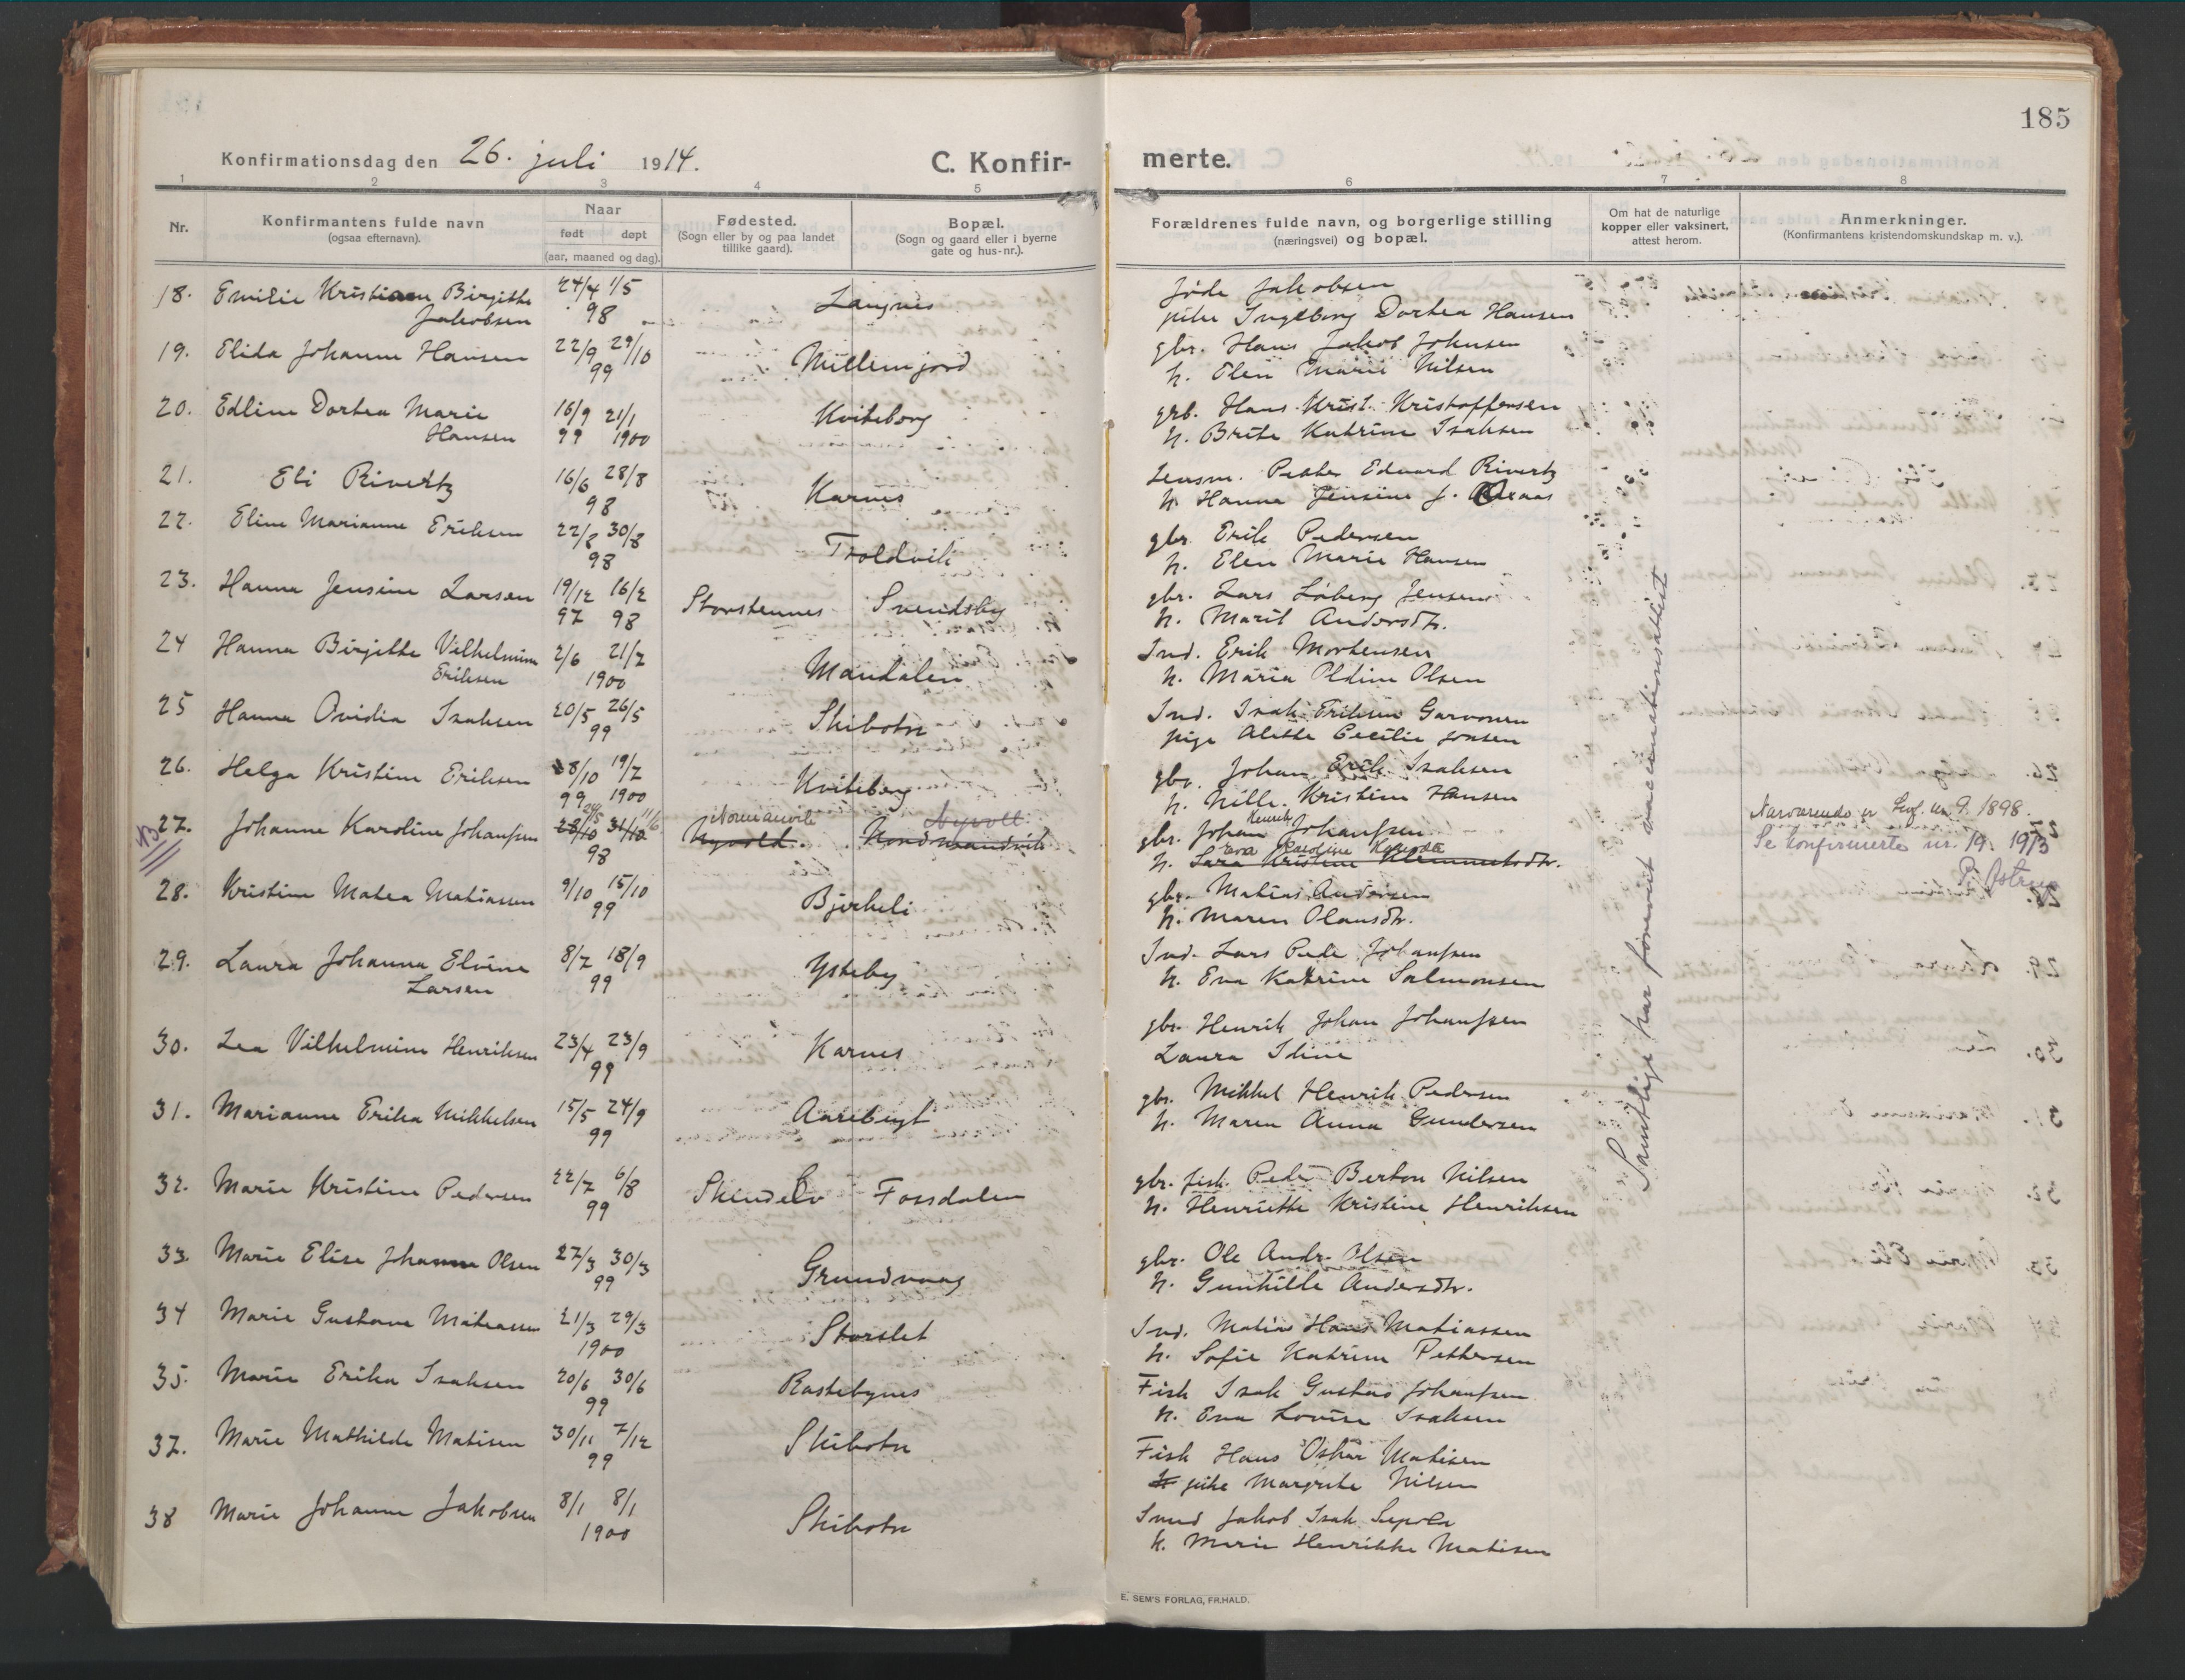 185
Konfirmationsdag den 26. juli 1914. C. Konfir- merte.
1 2 3 4 5 6 7 8
Nr. Konfirmantens fulde navn (ogsaa efternavn). Naar født døpt (aar, maaned og dag). Fødested. (Sogn eller by og paa landet tillike gaard). Bopæl. (Sogn og gaard eller i byerne gate og hus-nr.). Forældrenes fulde navn, og borgerlige stilling (næringsvei) og bopæl. Om hat de naturlige kopper eller vaksinert, attest herom. Anmerkninger. (Konfirmantens kristendomskundskap m. v.).
18. Emilie Kristiane Birgitte 24/4 1/5 Langnes Jøde Jakobsen
Jakobsen 98 pike Ingeborg Dortea Hansen
19. Elida Johanne Hansen 22/9 29/10 Nüllemjord gbr. Hans Jakob Johnsen
99 h. Elen Marie Nilsen
20. Edline Dortea Marie 16/9 21/1 Kviteborg grb. Hans Krist. Kristoffersen
Hansen 99 1900 h. Brite Katrine Isaksen
21. Eli Rivertz 16/6 28/8 Karnes Lensm. Peder Edvard Rivertz
98 h. Hanna Jensine J.
22. Eline Marianne Eriksen 22/8 30/8 Troldvik gbr. Erik Pedersen
98 h. Elen Marie Hansen
23. Hanna Jensine Larsen 19/12 16/2 Storstennes Svendsby gbr. Lars Løberg Jensen
97 98 h. Marit Andersdtr.
24 Hanna Birgitte Vilhelmine 2/6 21/7 Mandalen Ind. Erik Mortensen
Eriksen 1900 h. Maria Oldine Olsen
25 Hanna Ovidia Isaksen 20/5 26/5 Skibotn Ind. Isak Eriksen Garvonen
99 pige Alette Cecilie Jonsen
26. Helga Kristine Eriksen 8/10 19/7 Kviteberg gbr. Johan Erik Isaksen
99 1900 h. Nille Kristine Hansen
13 27. Johanne Karoline Johanssen 28/10 31/10 24/5 11/6 Nordmanvik Nyvold. Nyvoll Nordmandvik gbr. Johan Henrik Johanssen Nærværende er Lev. nr. 9. 1898.
98 h. Eva Karoline Sara Kristine Klemmetsdtr. Se konfirmerte nr. 19. 1913
P. Astrup
28. Kristine Matea Matiassen 9/10 15/10 Bjerkeli gbr. Matias Andersen
99 h. Maren Olausdtr.
29. Laura Johanna Elvine 8/7 18/9 Ysteby Ind. Lars Peder Johanssen
Larsen 99 h. Eva Katrine Salmonsen
30. Lea Vilhelmine Henriksen 23/4 23/9 Karnes gbr. Henrik Johan Johanssen
99 Laura Idine
31. Marianne Erika Mikkelsen 15/5 24/9 Aarebugt gbr. Mikkel Henrik Pedersen
99 h. Maren Anna Gundersen
32. Marie Kristine Pedersen 22/7 6/8 Skindelv Fossdalen gbr. fisk. Peder Berton Nilsen
99 h. Henriette Kristine Henriksen
33. Marie Elise Johanne Olsen 27/3 30/3 Grundvaag gbr. Ole Andr. Olsen
99 h. Gunhilde Andersdtr.
34 Marie Gustava Matiassen 21/3 29/3 Storslet Ind. Matias Hans Matiassen
1900 h. Sofie Katrine Pettersen
35. Marie Erika Isaksen 20/6 30/6 Rastebynes Fisk Isak Gustav Johanssen
99 h. Eva Lovise Isaksen
37. Marie Mathilde Matisen 30/11 7/12 Skibotn Fisk Hans Oskar Matisen
99 h pike Margrete Nilsen
38 Marie Johanne Jakobsen 8/1 8/1 Skibotn Smed Jakob Isak
1900 h. Marie Henrikke Matisen
Samtlige har forevist vaccinationsattest
E. SEM'S FORLAG, FR.HALD.